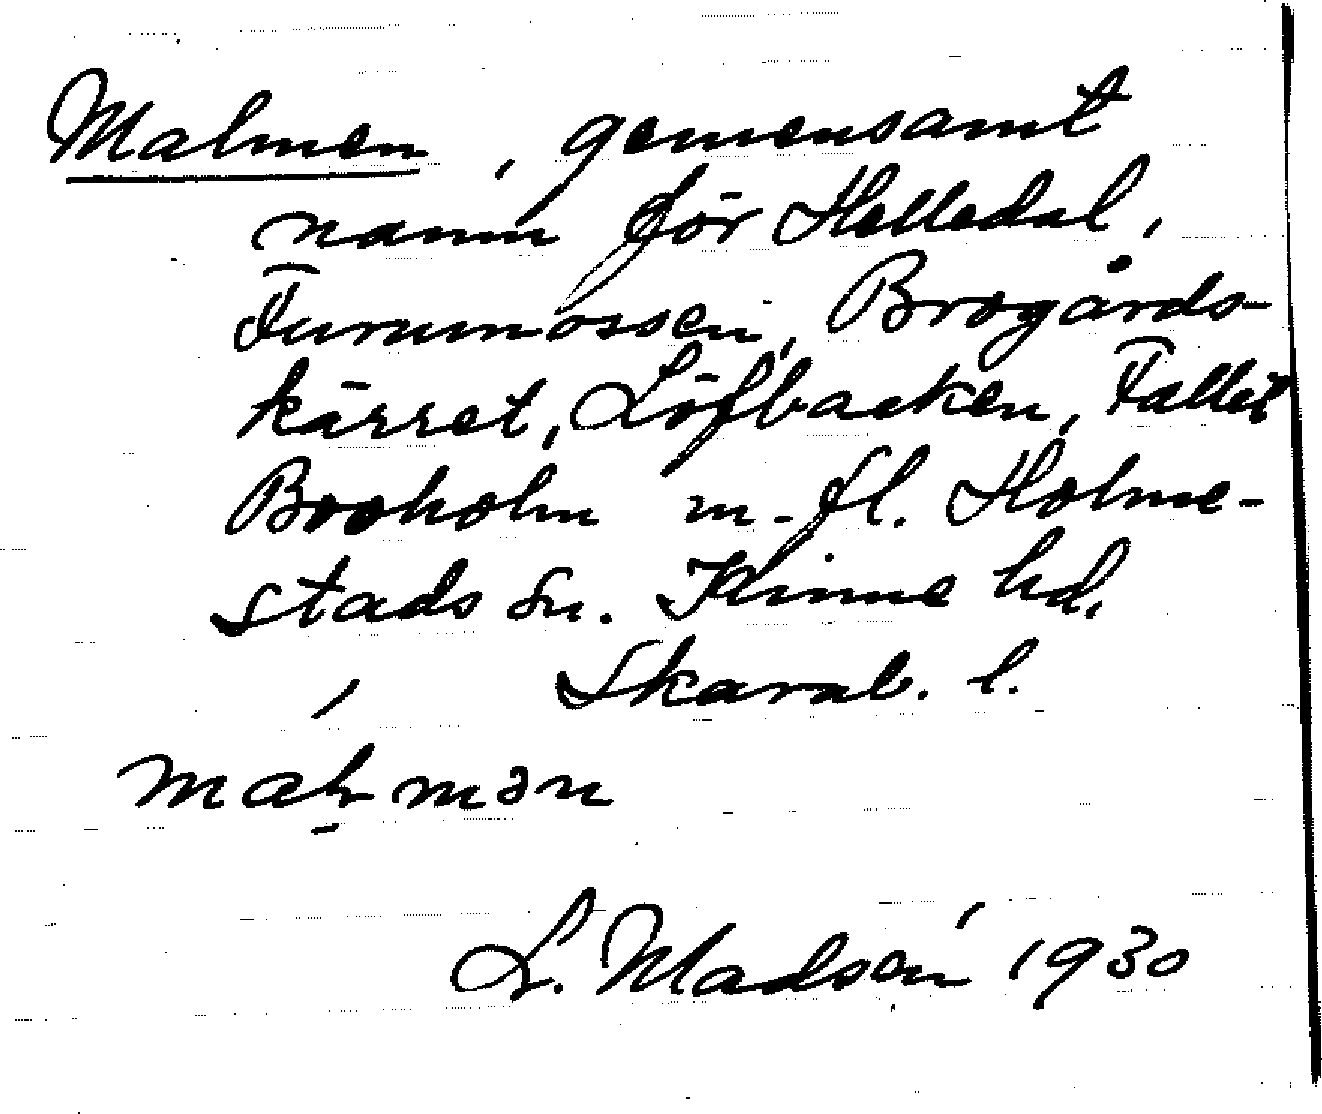 Malmen, gemensamt
namn för Helledal,
Furumossen, Brogårds-
kärret, Löfbacken, Fallet
Booholm m. fl. Holme-
stads sn. Kinne hd.
Skarab. l.
L. Madsén 1930